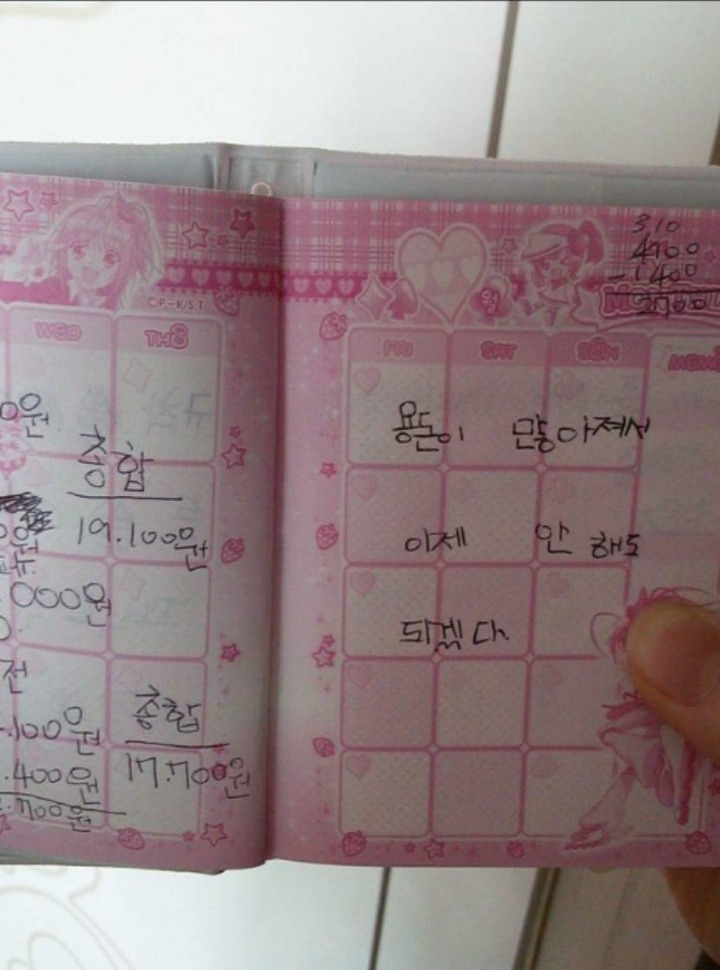 ©P-K/S.T
WED THU
0원
종합
19.100원
000원
0.
전
.100원
.400원
.700원
종합
17.700원
310
4100
-1400
2700
월
FRI SAT SUN MEMO
용돈이 많아져서
이제 안 해도
되겠다.